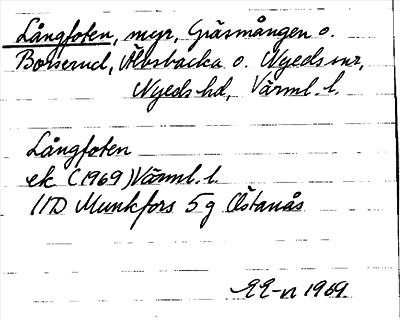 Långfoten, myr, Gräsmången o.
Borserud, Älvsbacka o. Nyeds snr,
Nyeds hd, Värml. l.
Långfoten
ek (1969) Värml. l.
11D Munkfors 5g Östanås
1969.